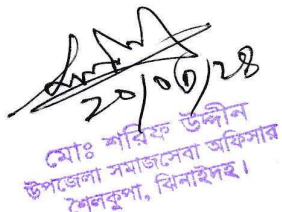 ২০/০৩/২৪
মোঃ শরিফ উদ্দীন
উপজেলা সমাজসেবা অফিসার
শৈলকুপা, ঝিনাইদহ।